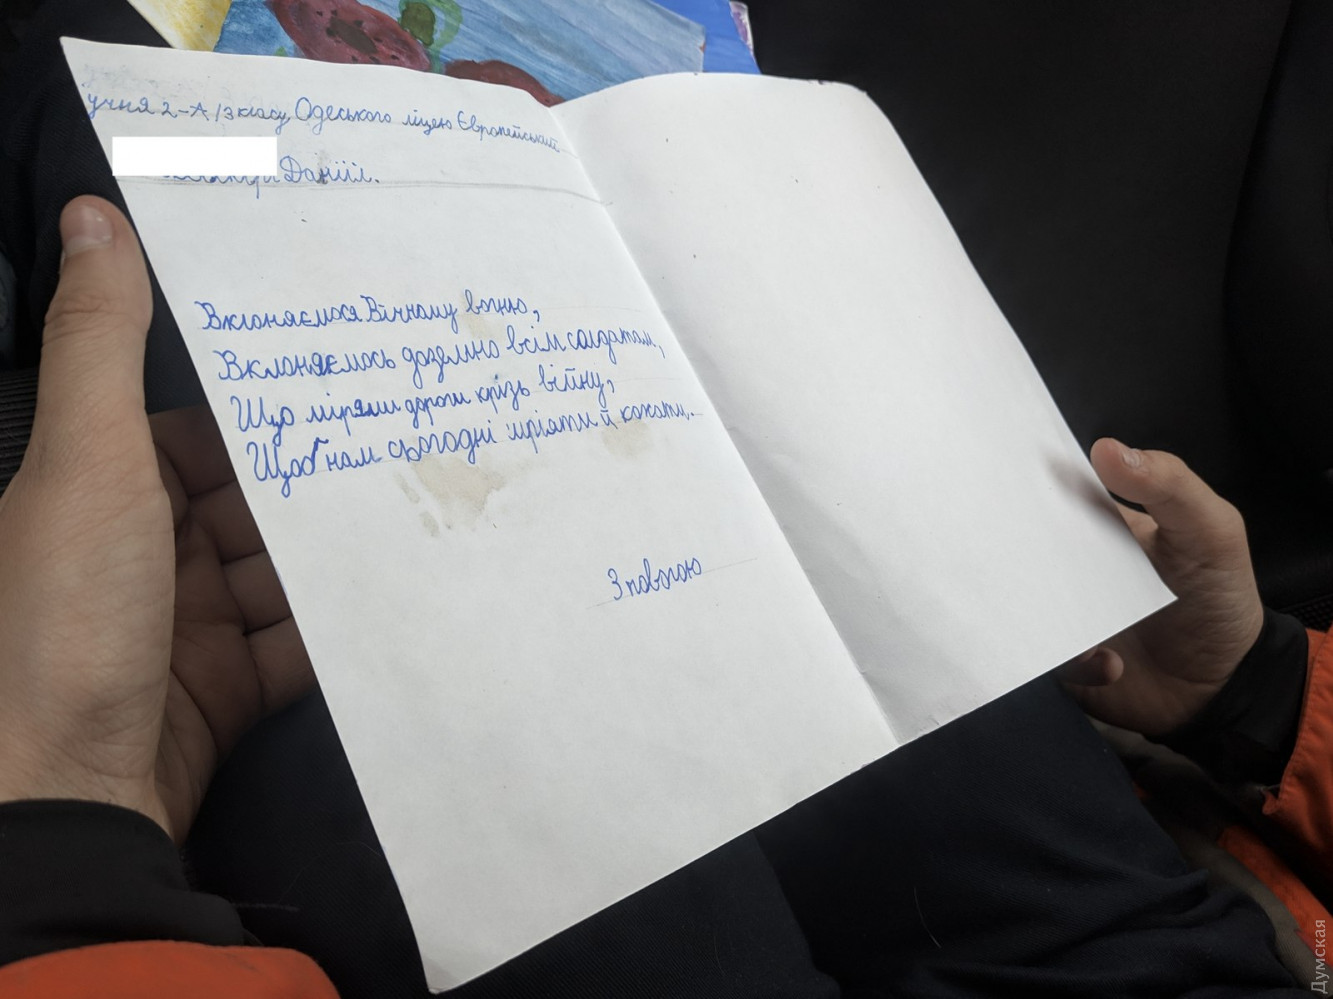 учня 2-А/3 класу Одеського ліцею Європейський
Данііл.
Вклоняємося Вічному вогню,
Вклоняємось доземно всім солдатам,
Що міряли дороги крізь війну,
Щоб нам сьогодні мріяти й кохати.
З повагою
Думская